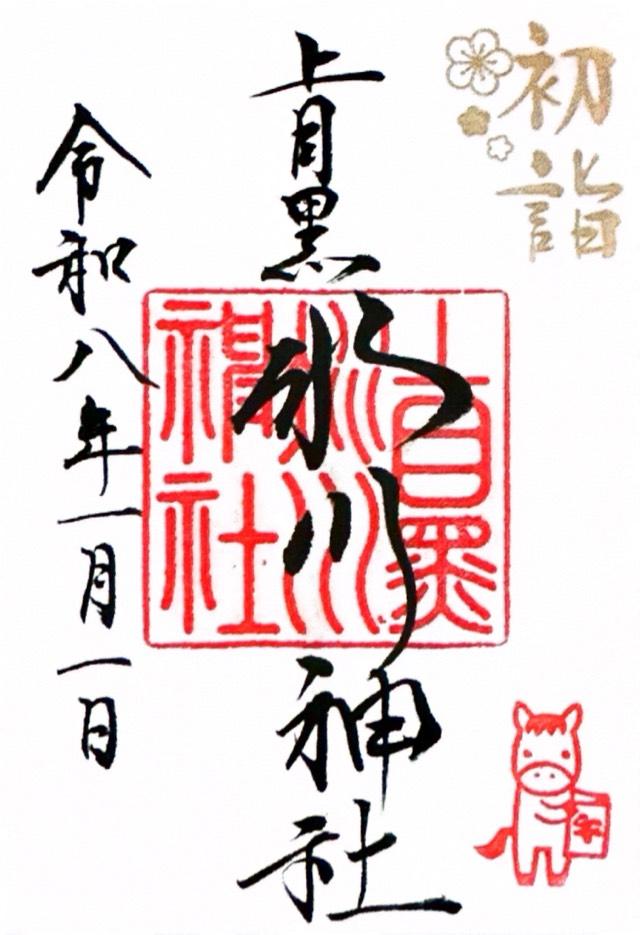 初詣
上目黒氷川神社
上目黒
氷川
神社
令和八年一月一日
午